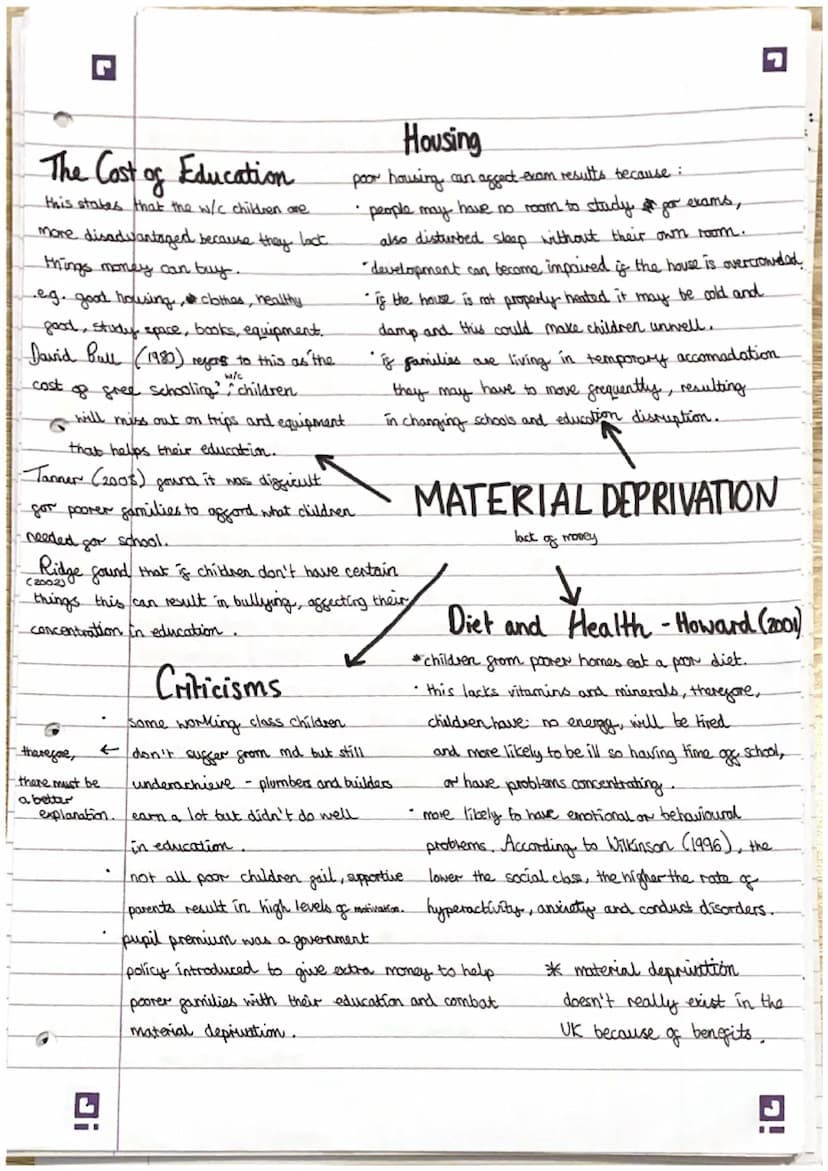 Housing
poor housing can affect exam results because :
• people may have no room to study for exams,
also disturbed sleep without their own room.
• development can become impaired if the house is overcrowded.
• if the house is not properly heated it may be cold and
damp and this could make children unwell.
• if families are living in temporary accomadation
they may have to move frequently, resulting
in changing schools and education disruption.
The Cost of Education
this states that the w/c children are
more disadvantaged because they lack
things money can buy.
e.g. good housing, clothes, healthy
food, study space, books, equipment.
David Bull (1980) refers to this as 'the
cost of free schooling', w/c children
will miss out on trips and equipment
that helps their education.
Tanner (2003) found it was difficult
for poorer families to afford what children
needed for school.
Ridge found that if children don't have certain
(2002)
things this can result in bullying, affecting their
concentration in education.
MATERIAL DEPRIVATION
lack of money
Diet and Health - Howard (2001)
* children from poorer homes eat a poor diet.
• this lacks vitamins and minerals, therefore,
children have: no energy, will be tired
and more likely to be ill so having time off school,
or have problems concentrating.
• more likely to have emotional or behavioural
problems. According to Wilkinson (1996), the
lower the social class, the higher the rate of
hyperactivity, anxiety and conduct disorders.
Criticisms
• some working class children
don't suffer from md but still
underachieve - plumbers and builders
earn a lot but didn't do well
in education.
← therefore,
there must be
a better
explanation.
• not all poor children fail, supportive
parents result in high levels of motivation.
• pupil premium was a government
policy introduced to give extra money to help
poorer families with their education and combat
material deprivation.
* material deprivation
doesn't really exist in the
UK because of benefits.